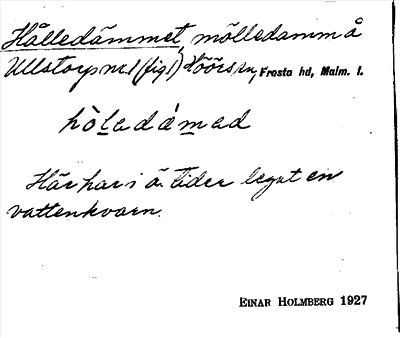 Hålledämmet, mölledamm å
Ullstorp nr 1 (fig 1) Höörs sn, Frosta hd, Malm. l.
hòlɘdámɘd
Här har i ä. tider legat en
vattenkvarn.
EINAR HOLMBERG 1927